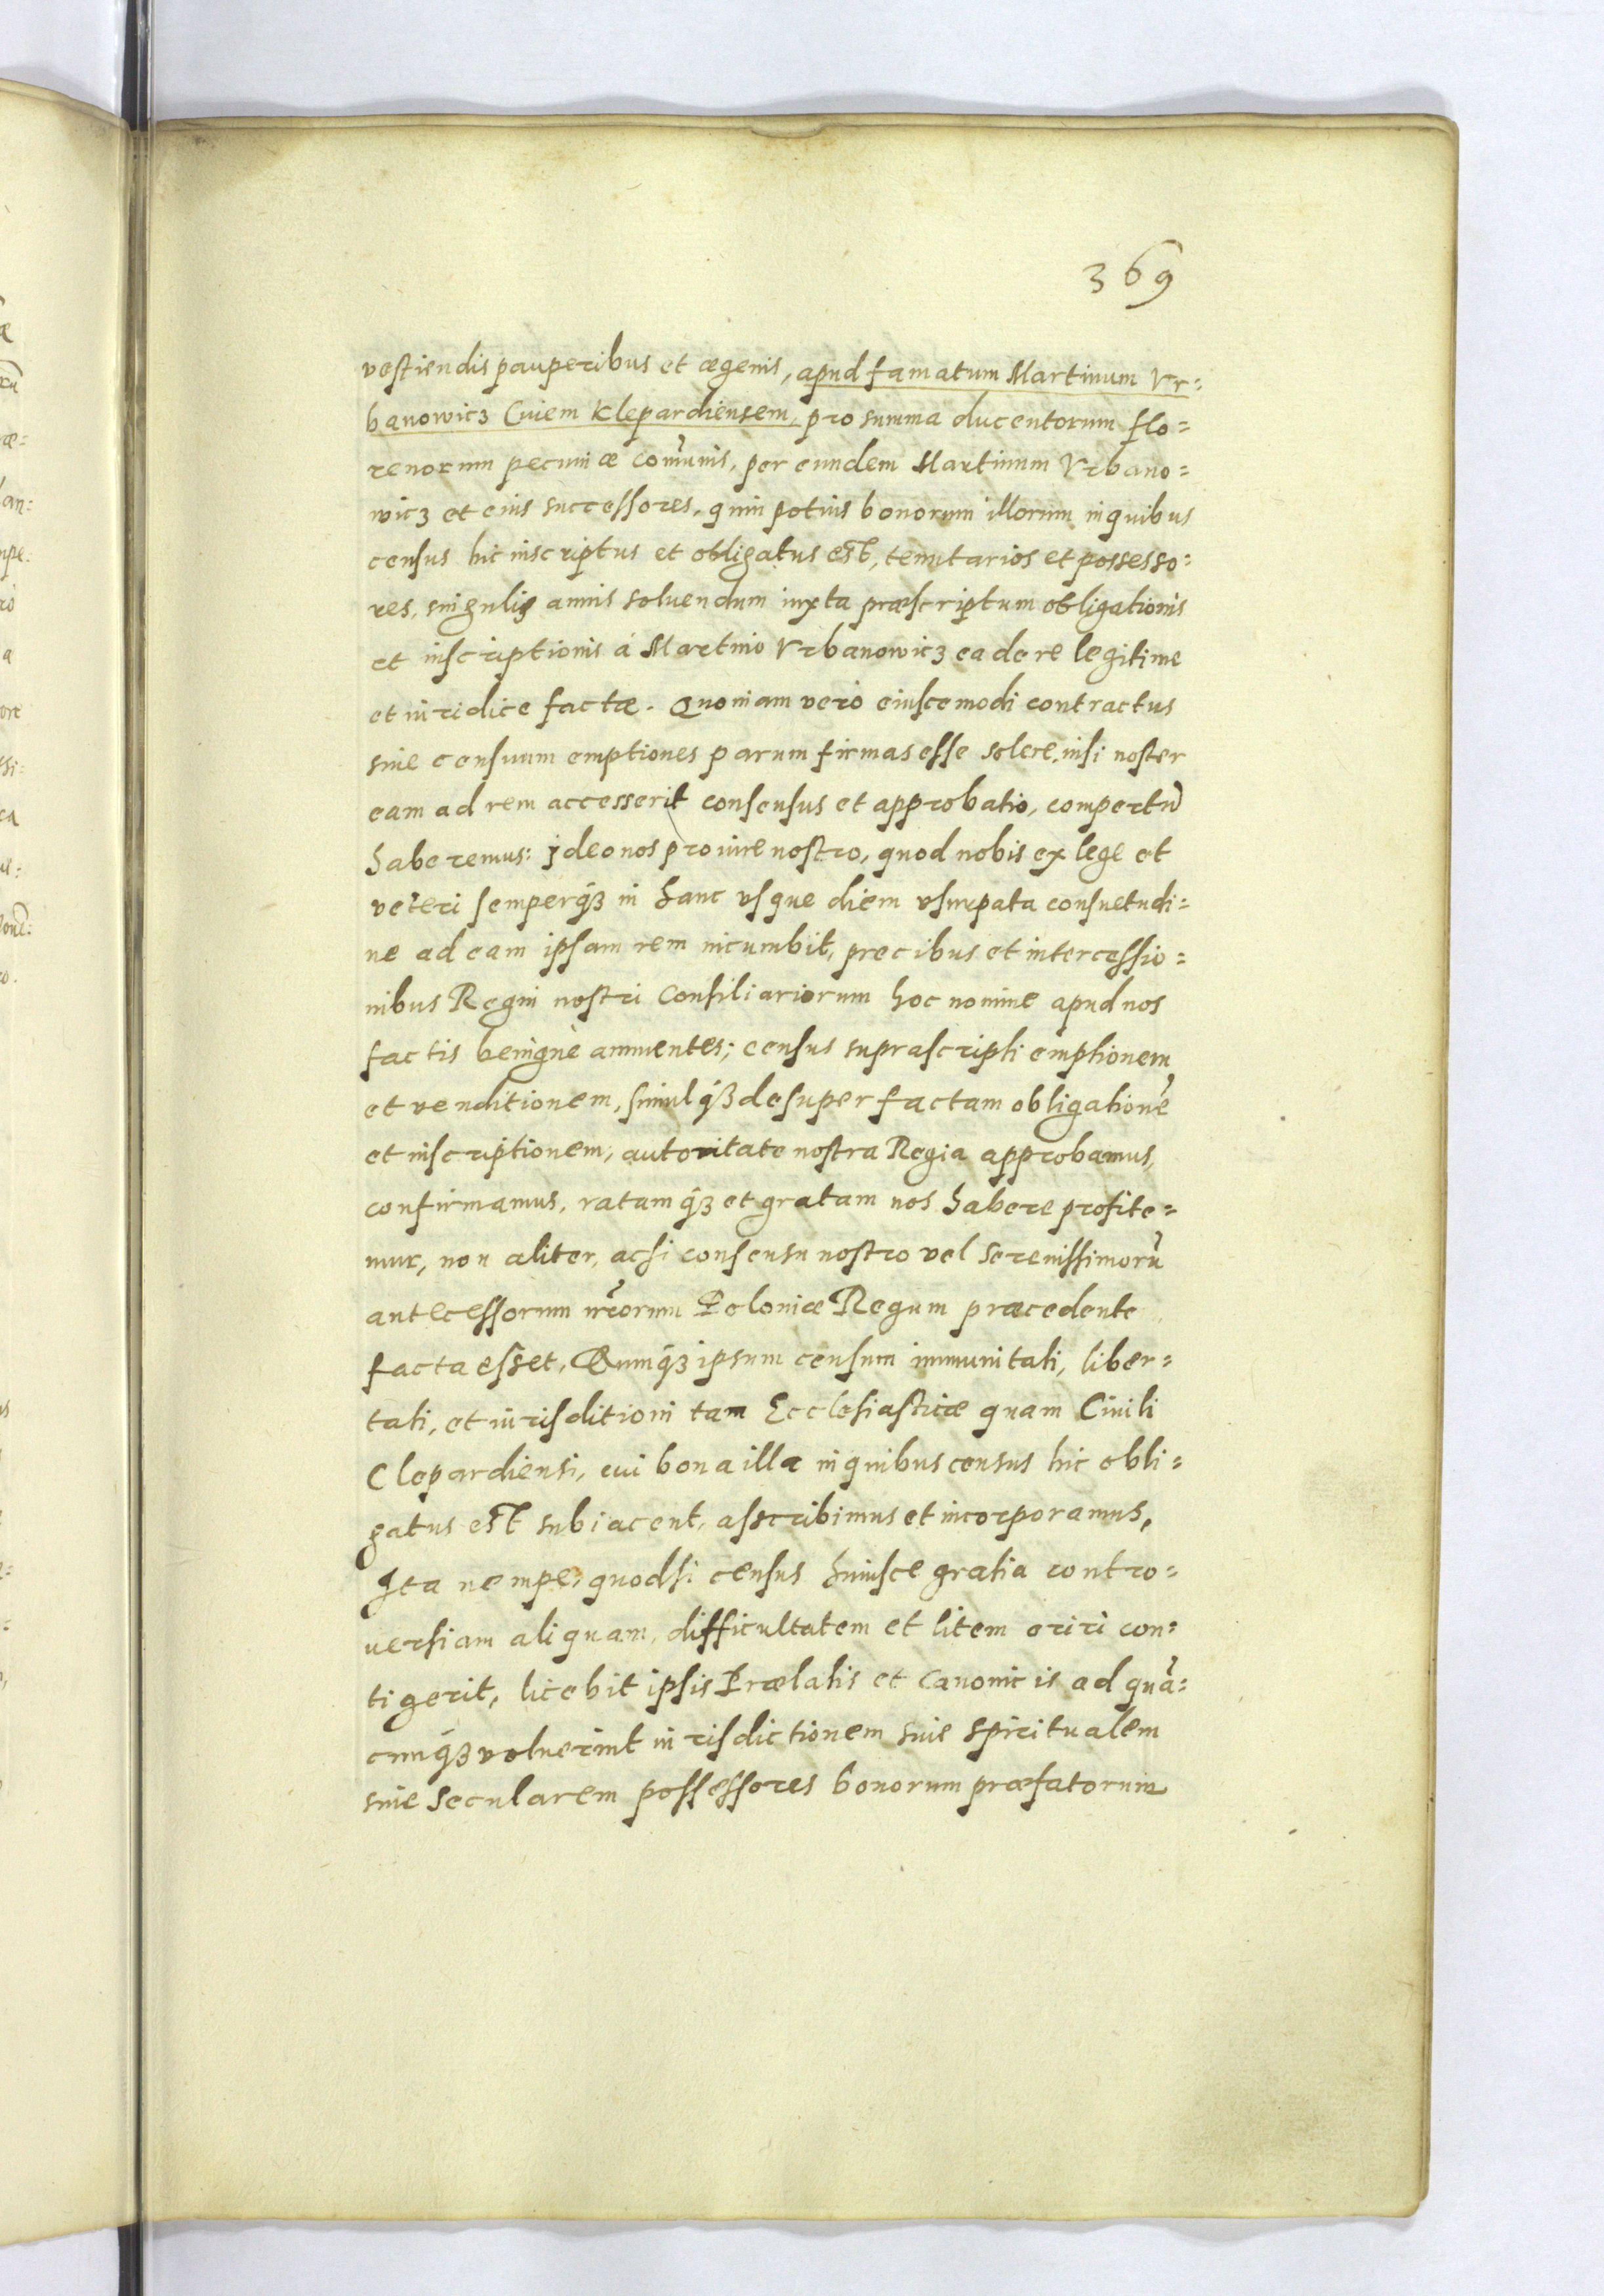 369
vestiendis pauperibus et ægenis, apud famatum Martinum Vr=
banowicz Ciuem Klepardiensem, pro summa ducentorum flo=
renorum pecuniæ com̃unis, per eundem Martinum Vrbano=
wicz et eius successores, quin potius bonorum illorum in quibus
census hic inscriptus et obligatus est, tenutarios et possesso=
res, singulis annis soluendum iuxta præscriptum obligationis
et inscriptionis á Martino Vrbanowicz ea de re legitime
et iuridice factæ. Quoniam veró eiuscemodi contractus
siue censuum emptiones parum firmas esse solere, nisi noster
eam ad rem accesserit consensus et approbatio, compertũ
haberemus: jdeo nos pro iure nostro, quod nobis ex lege et
veteri semperq́ȝ in hanc vsque diem vsurpata consuetudi=
ne ad eam ipsam rem incumbit, precibus et intercessio=
nibus Regni nostri Consiliariorum hoc nomine apud nos
factis benignè annuentes; census suprascripti emptionem
et venditionem, simulq́ȝ desuper factam obligationẽ
et inscriptionem, autoritate nostra Regia approbamus,
confirmamus, ratamq́ȝ et gratam nos habere profite=
mur, non aliter, acsi consensu nostro vel Serenissimorũ
antecessorum nr̃orum Poloniæ Regum præcedente
facta esset, Qumq́ȝ ipsum censum immunitati, liber=
tati, et iurisditioni tam Ecclesiasticæ quam Ciuili
Clepardiensi, cui bona illa in quibus census hic obli=
gatus est subiacent, asscribimus et incorporamus,
Ita nempe, quodsi census huiusce gratia contro=
uersiam aliquam, difficultatem et litem oriri con=
tigerit, licebit ipsis Prælatis et Canonicis ad quã=
cunq́ȝ voluerint iurisdictionem siue spiritualem
siue Secularem possessores bonorum præfatorum